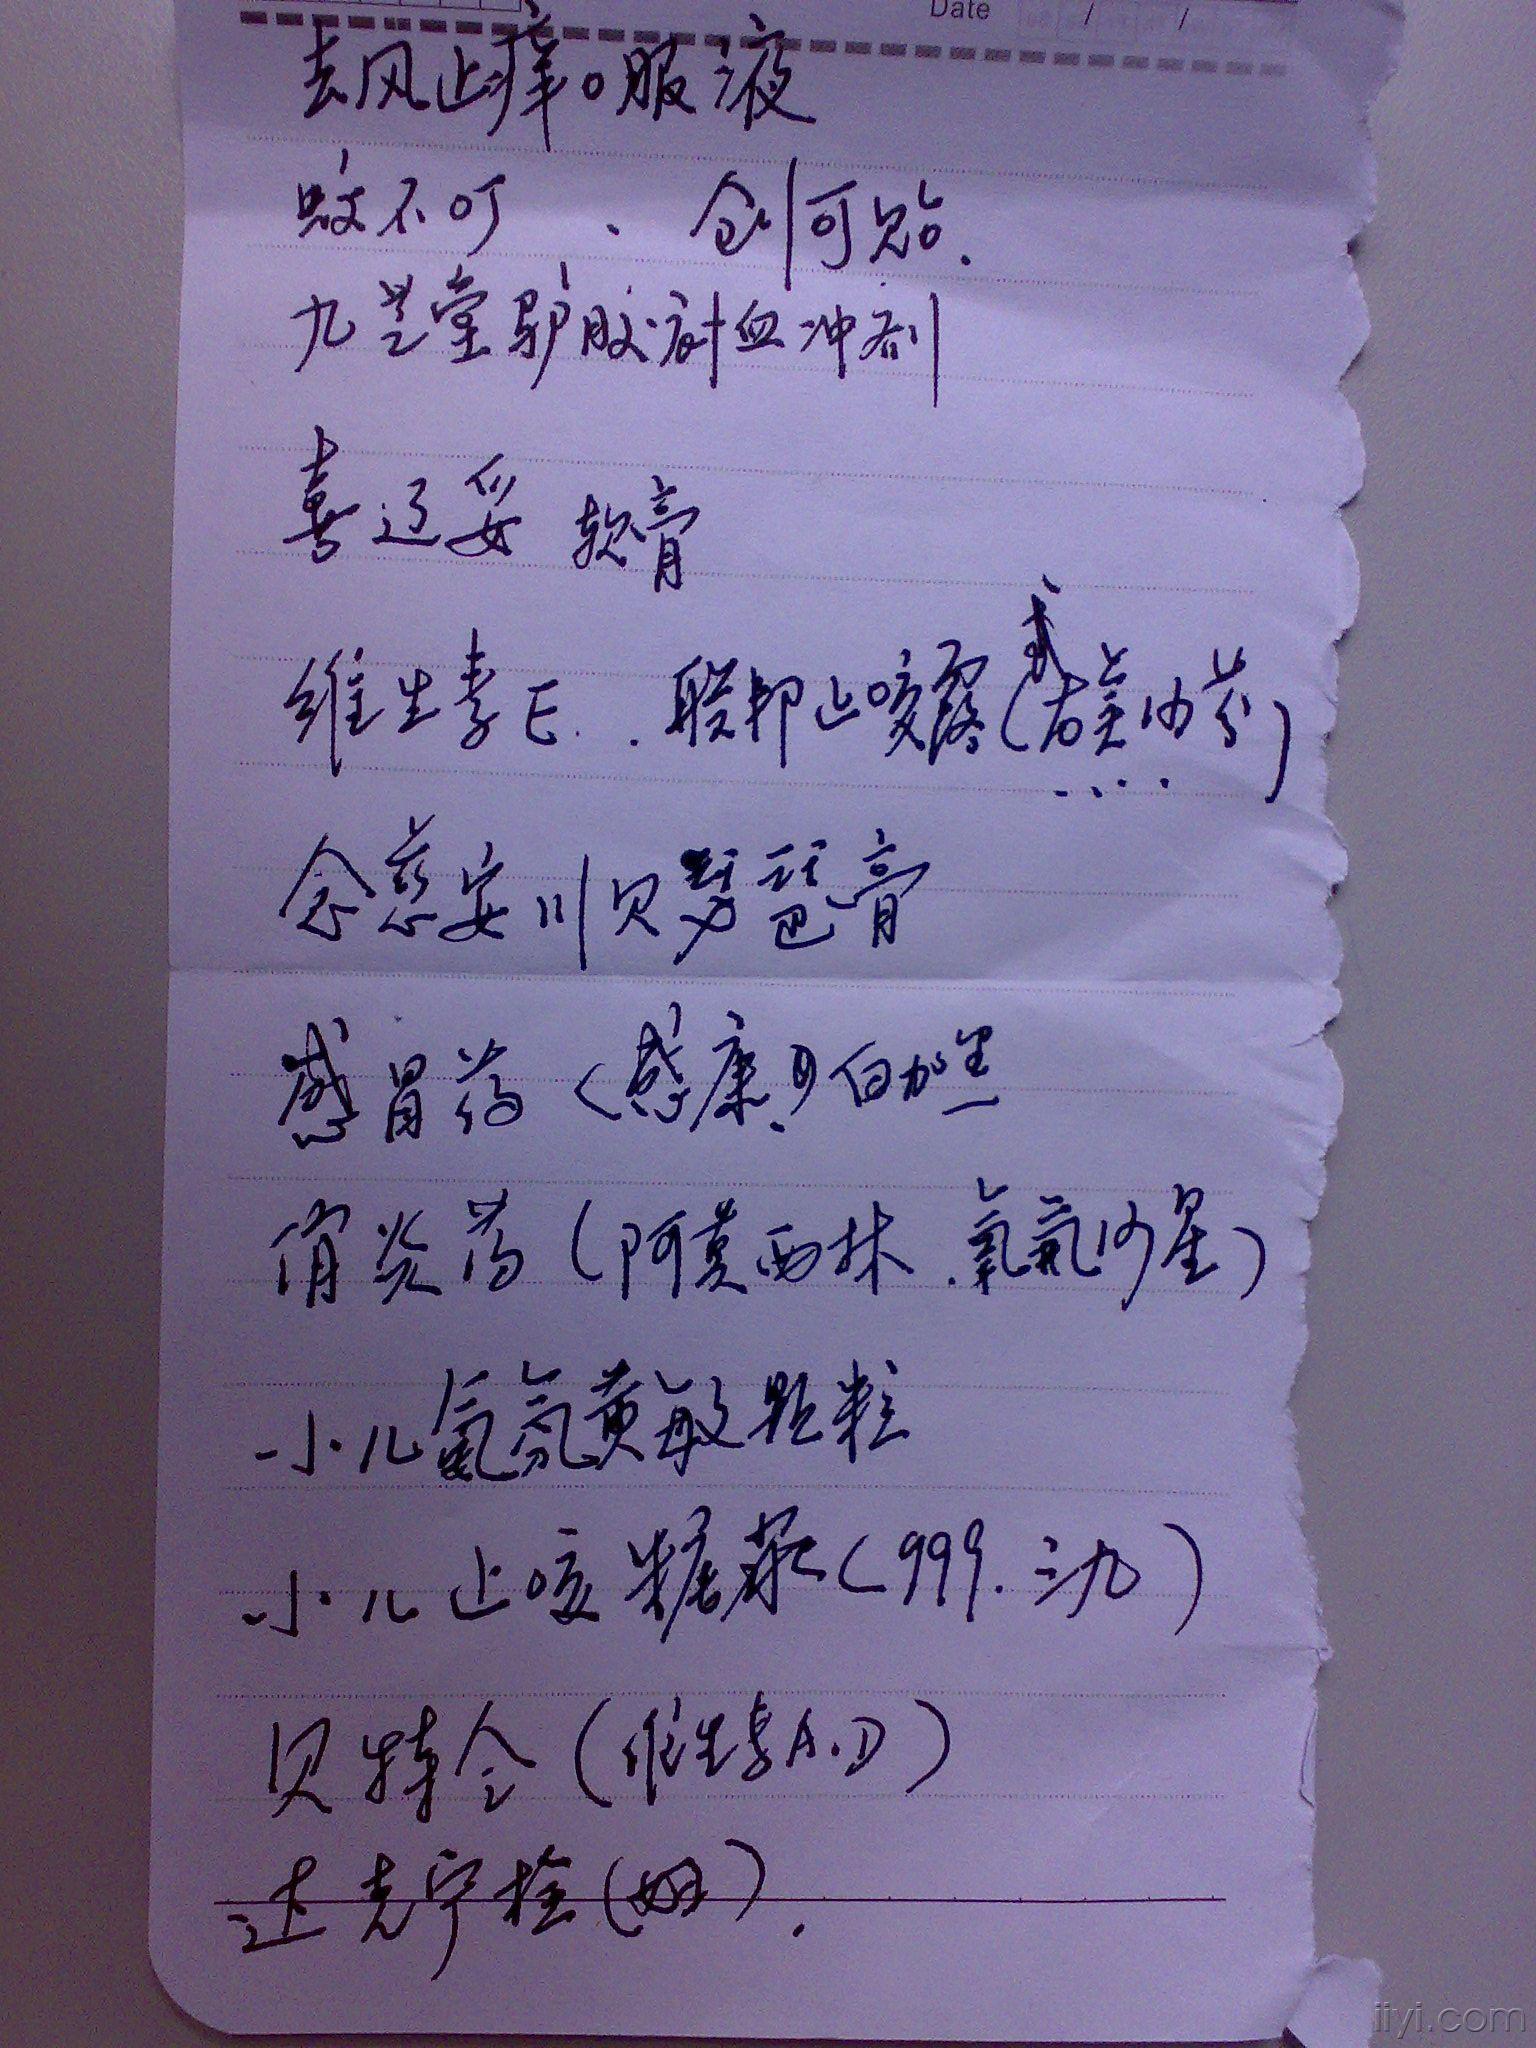 Date / /
去风止痒口服液
蚊不叮 . 创可贴.
九芝堂驴胶补血冲剂
喜辽妥 软膏
维生素E. . 联邦止咳露(右美沙芬)
念慈安川贝琵琶膏
感冒药(感康)白加黑
消炎药(阿莫西林.氧氟沙星)
小儿氨氛黄敏颗粒
小儿止咳糖浆(999.三九)
贝特令(维生素A.D)
达克宁栓(妇).
iiyi.com